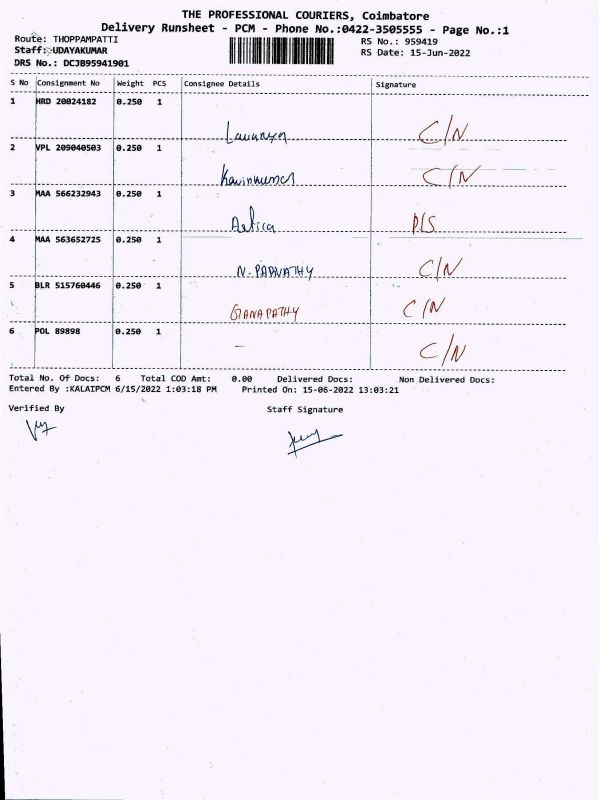 THE PROFESSIONAL COURIERS, Coimbatore
Delivery Runsheet - PCM - Phone No.:0422-3505555 - Page No.:1
Route: THOPPAMPATTI RS No.: 959419
Staff: UDAYAKUMAR RS Date: 15-Jun-2022
DRS No.: DCJB95941901
S No Consignment No Weight PCS Consignee Details Signature
1 HRD 20024182 0.250 1
Lavanya C/N
2 VPL 209040503 0.250 1
Kavinkumar C/N
3 MAA 566232943 0.250 1
P/S
4 MAA 563652725 0.250 1
N. PARVATHY C/N
5 BLR 515760446 0.250 1
GANAPATHY C/N
6 POL 89898 0.250 1
- C/N
Total No. Of Docs: 6 Total COD Amt: 0.00 Delivered Docs: Non Delivered Docs:
Entered By :KALAIPCM 6/15/2022 1:03:18 PM Printed On: 15-06-2022 13:03:21
Verified By Staff Signature